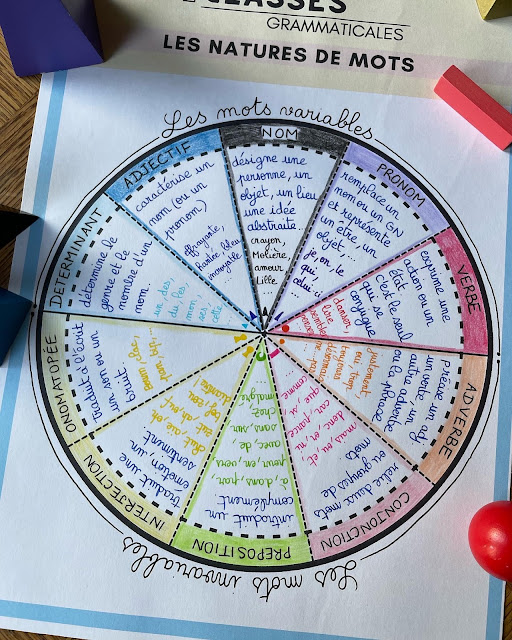 CLASSES
GRAMMATICALES
LES NATURES DE MOTS
Les mots variables
DÉTERMINANT
détermine le
genre et le
nombre d'un
nom.
une, des,
du, les
mon,
ses,
cette
ADJECTIF
caractérise un
nom (ou un
pronom)
effrayante,
bleu
incroyable
...
NOM
désigne une
personne, un
objet, un lieu
une idée
abstraite...
crayon,
Molière,
amour
Lille
...
PRONOM
remplace un
nom ou un GN
et représente
un être, un
objet...
je, on, le
qui,
celui-ci
VERBE
exprime une
action ou un
état
c'est le seul
qui se
conjugue
danser,
lire
sembler
ADVERBE
précise un adj
un verbe, un
autre adverbe
ou la phrase
justement,
trop
toujours
désormais
ne...pas
CONJONCTION
relie deux mots
ou groupes de
mots
mais, ou, et,
donc, et, ni,
car, parce
que, si,
comme
PRÉPOSITION
introduit un
complément
à, dans, par,
pour, en, vers
avec, de,
sans, sur
chez,
malgré
INTERJECTION
traduit une
émotion, un
sentiment
ONOMATOPÉE
traduit à l'écrit
un son ou un
bruit
Les mots invariables